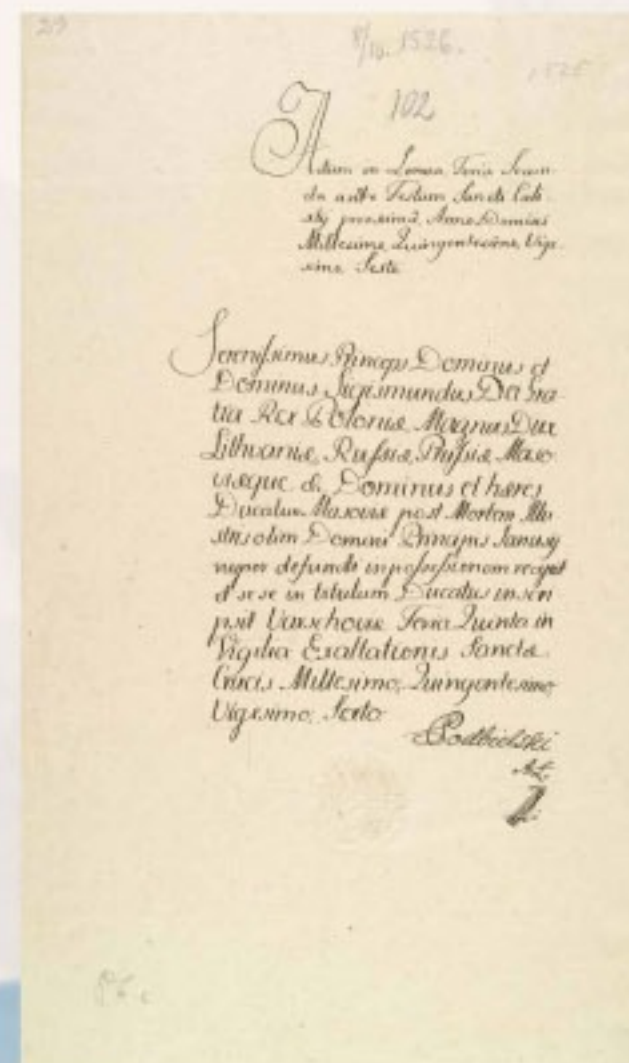 29
8/10. 1526.
1526
102
Actum in Lomza Feria Secun-
da ante Festum Sancti Cali-
sty proximã, Anno Domini
Millesimo, Quingentesimo, Vige-
simo Sexto
Serenissimus Princeps Dominus et
Dominus Sigismundus Dei Gra-
tia Rex Poloniæ Magnus Dux
Lithvaniæ, Russiæ, Prussiæ Maso-
viæque &. Dominus et hæres
Ducatus Masoviæ post Mortem Illu-
stris olim Domini Principis Janusÿ
nuper defuncti in possessionem recepit
et se se in titulum Ducatus inscri
psit Varschoviæ Feria Quinta in
Vigilia Exaltationis Sanctæ
Crucis Millesimo, Quingentesimo,
Vigesimo, Sexto
Podbielski